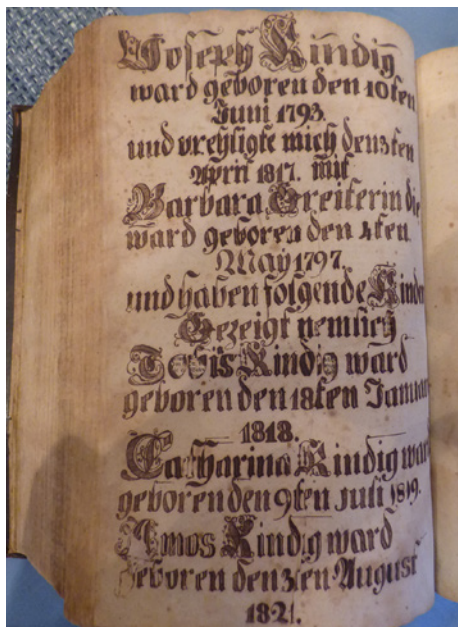 Joseph Kindig
ward geboren den 10ten
Juni 1793.
und vreyligte mich den 3ten
April 1817. mit
Barbara Greiterin die
ward geboren den 4ten
May 1797
und haben folgende Kinder
Gezeigt nemlich
Tobis Kindig ward
geboren den 18ten Januar
1818.
Catharina Kindig ward
geboren den 9ten Juli 1819.
Amos Kindig ward
geboren den 3ten August
1821.